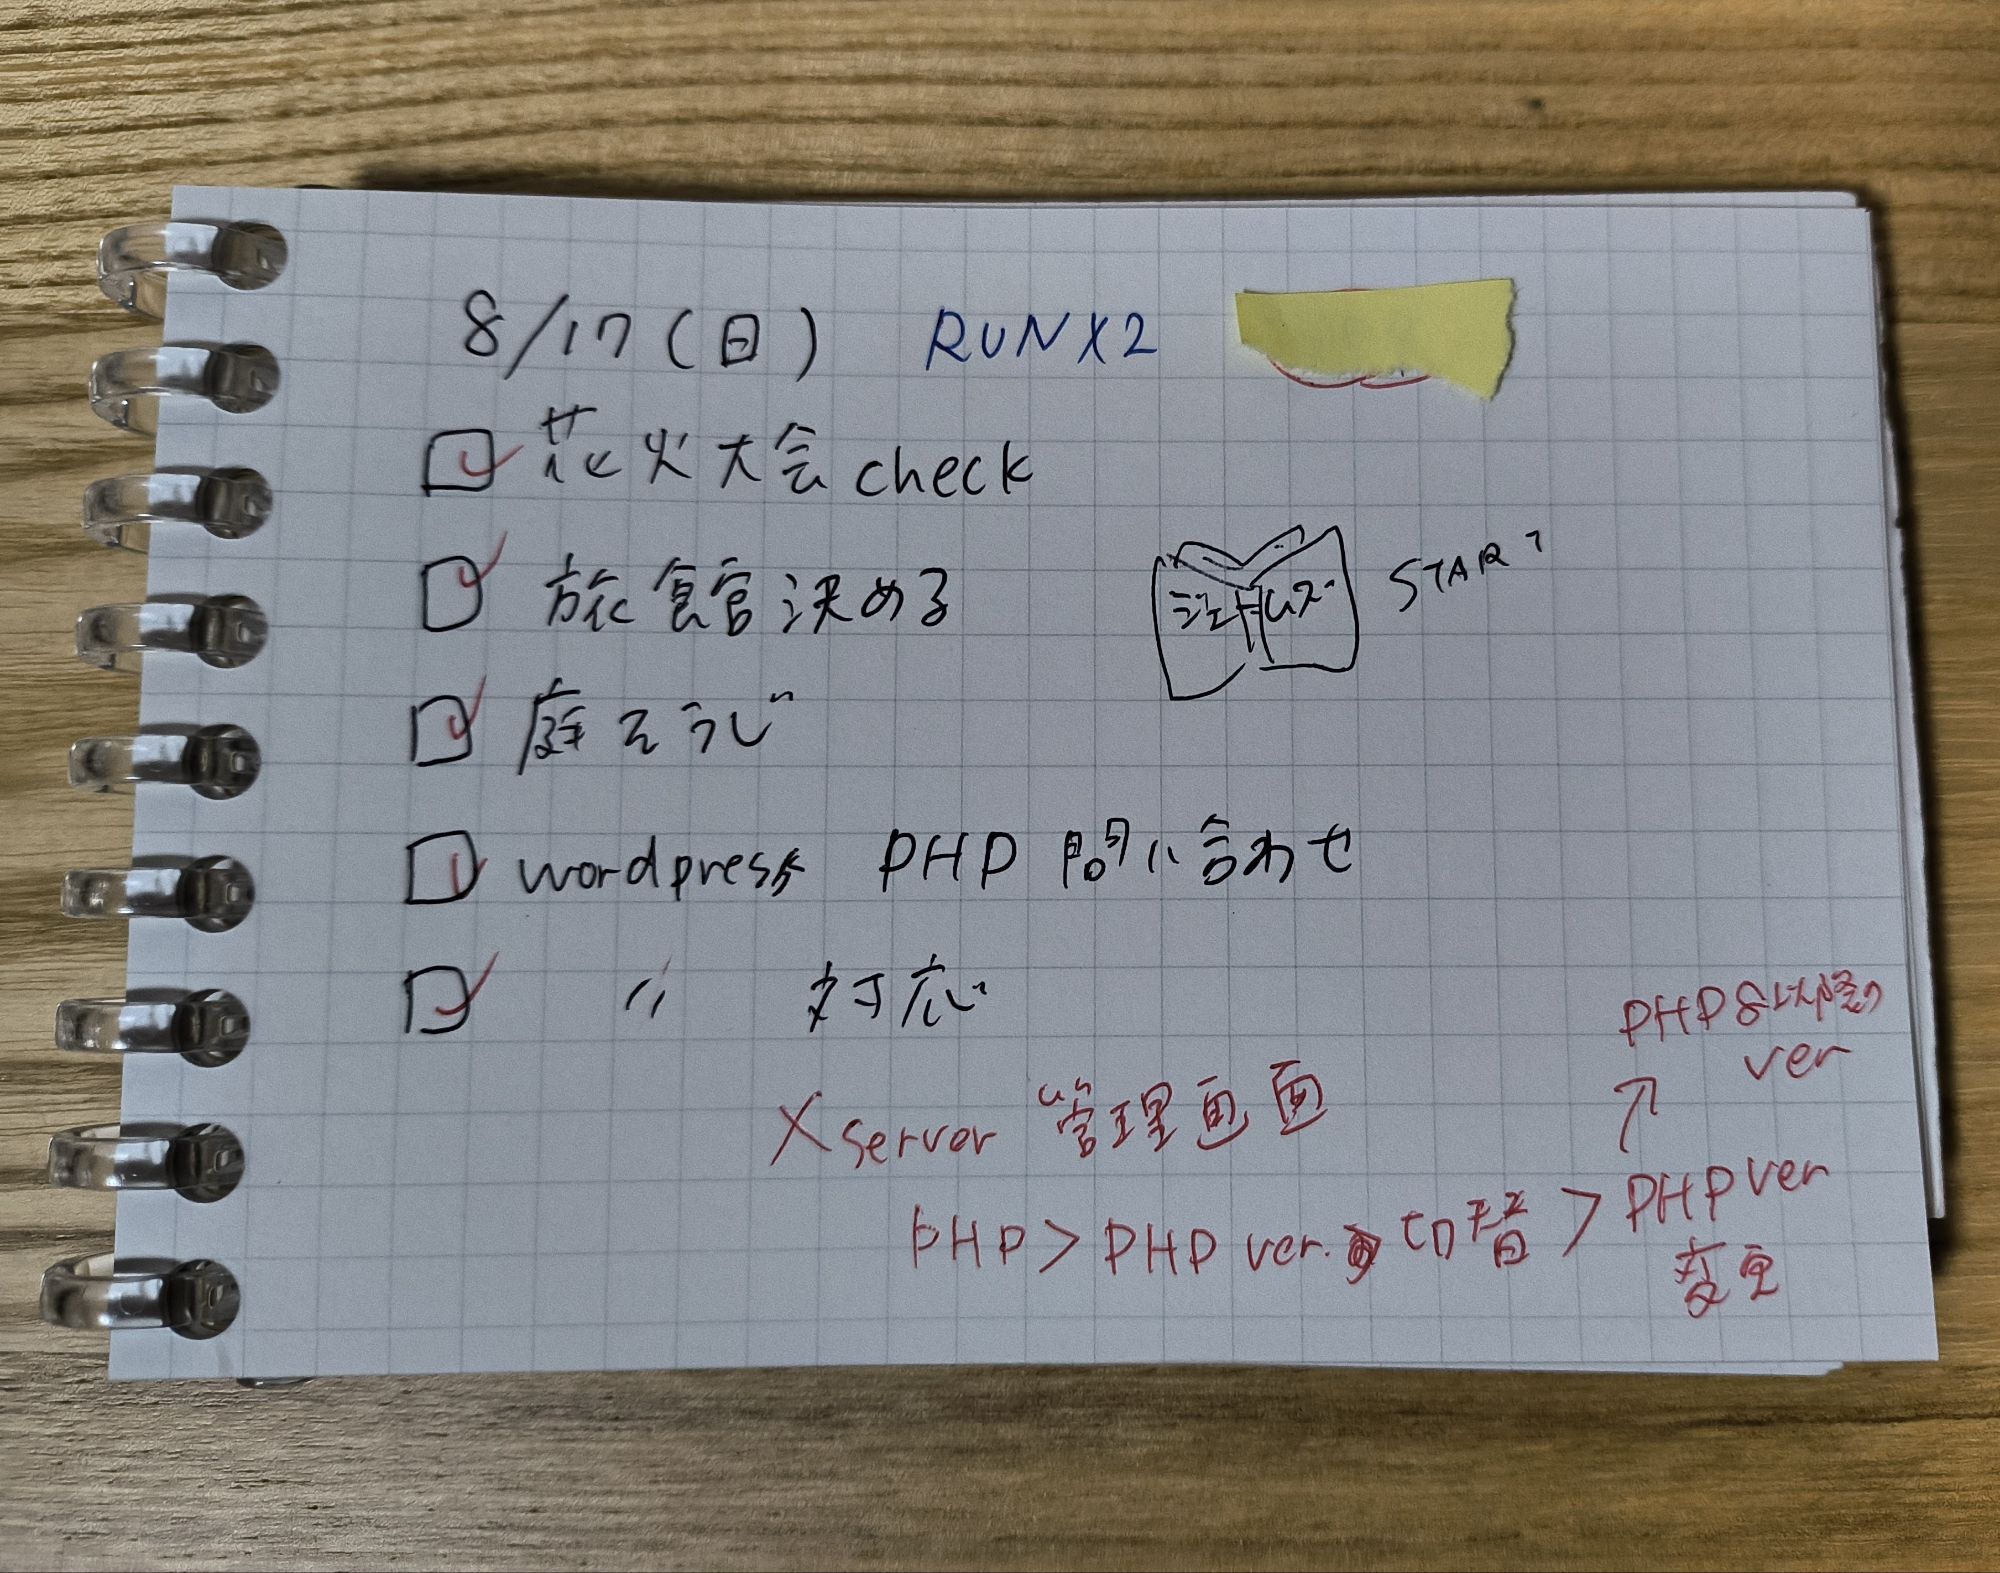 8/17(日) RUN X2
花火大会check
旅館決める
START
庭そうじ
wordpress PHP問い合わせ
〃 対応
PHP8以降の
ver
Xserver 管理画面
PHP>PHP ver. 切替>PHP ver
変更